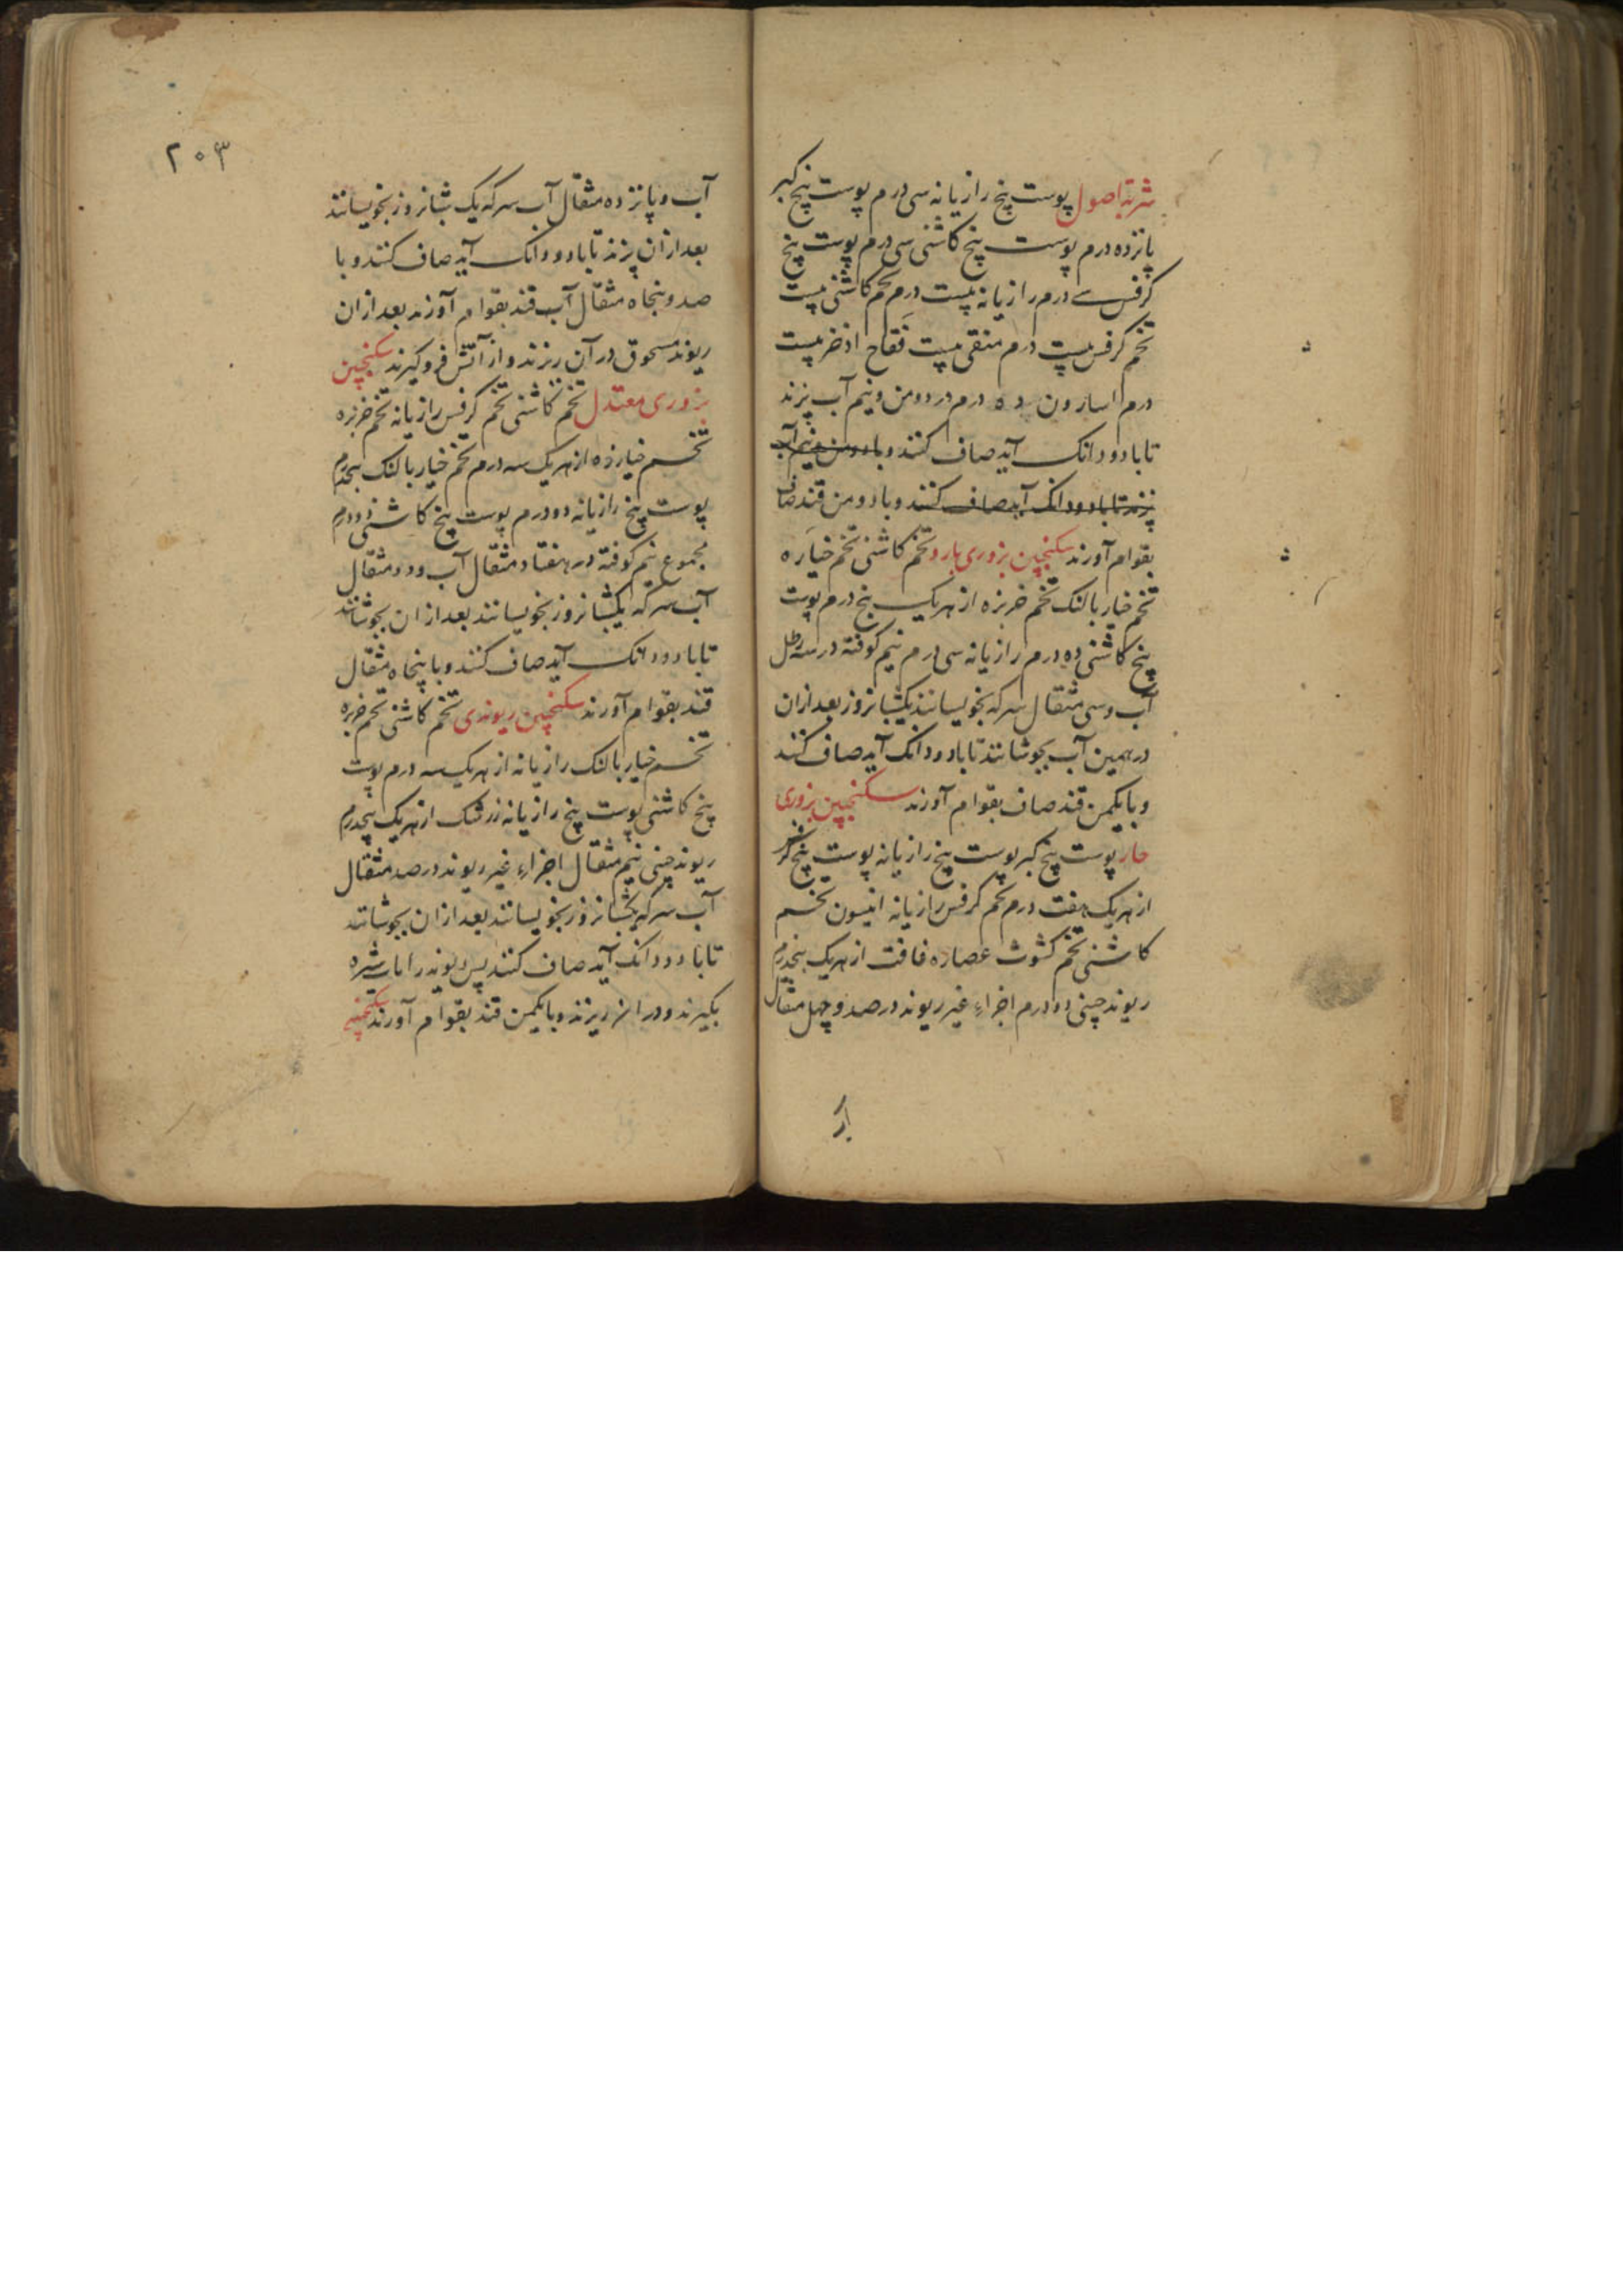 شربة اصول پوست بیخ رازیانه سی درم پوست بیخ کبر
پانزده درم پوست بیخ کاشنی سی درم پوست بیخ
کرفس سی درم رازیانه بیست درم تخم کاشنی بیست
تخم کرفس بیست درم منقی بیست فقاح اذخر بیست
درم اسارون ده درم در دو من و نیم آب پزند
تا با دو دانک آید صاف کنند و با دو من و نیم آب
پزند تا با دو دانک آید صاف کنند و با دو من قند صاف
بقوام آورند سکنجبین بزوری بارد تخم کاشنی تخم خیاره
تخم خیار بالنک تخم خربزه از هر یک پنج درم پوست
بیخ کاشنی ده درم رازیانه سی درم نیم کوفته در سه رطل
آب و سی مثقال سرکه بخویسانند یکشبانروز بعد ازان
در همین آب بجوشانند تا با دو دانک آید صاف کنند
و با یکمن قند صاف بقوام آورند سکنجبین بزوری
حار پوست بیخ کبر پوست بیخ رازیانه پوست بیخ کرفس
از هر یک هفت درم تخم کرفس رازیانه انیسون تخم
کاشنی تخم کشوث عصاره غافت از هر یک پنجدرم
ریوند چینی دو درم اجزاء غیر ریوند در صد و چهل مثقال
۲۰۳
آب و پانزده مثقال آب سرکه یک شبانروز بخویسانند
بعد ازان پزند تا با دو دانک آید صاف کنند و با
صد و پنجاه مثقال آب قند بقوام آورند بعد ازان
ریوند مسحوق در آن ریزند و از آتش فرو کیرند سکنجبین
بزوری معتدل تخم کاشنی تخم کرفس رازیانه تخم خربزه
تخم خیارزه از هر یک سه درم تخم خیار بالنک پنجدرم
پوست بیخ رازیانه دو درم پوست بیخ کاشنی دو درم
مجموع نیم کوفته در هفتاد مثقال آب و دو مثقال
آب سرکه یکشبانروز بخویسانند بعد ازان بجوشانند
تا با دو دانک آید صاف کنند و با پنجاه مثقال
قند بقوام آورند سکنجبین ریوندی تخم کاشنی تخم خربزه
تخم خیار بالنک رازیانه از هر یک سه درم پوست
بیخ کاشنی پوست بیخ رازیانه زرشک از هر یک پنجدرم
ریوند چینی نیم مثقال اجزاء غیر ریوند در صد مثقال
آب سرکه یکشبانروز بخویسانند بعد ازان بجوشانند
تا با دو دانک آید صاف کنند پس ریوند را شیره
بکیرند و در ان ریزند و با یکمن قند بقوام آورند سکنجبین